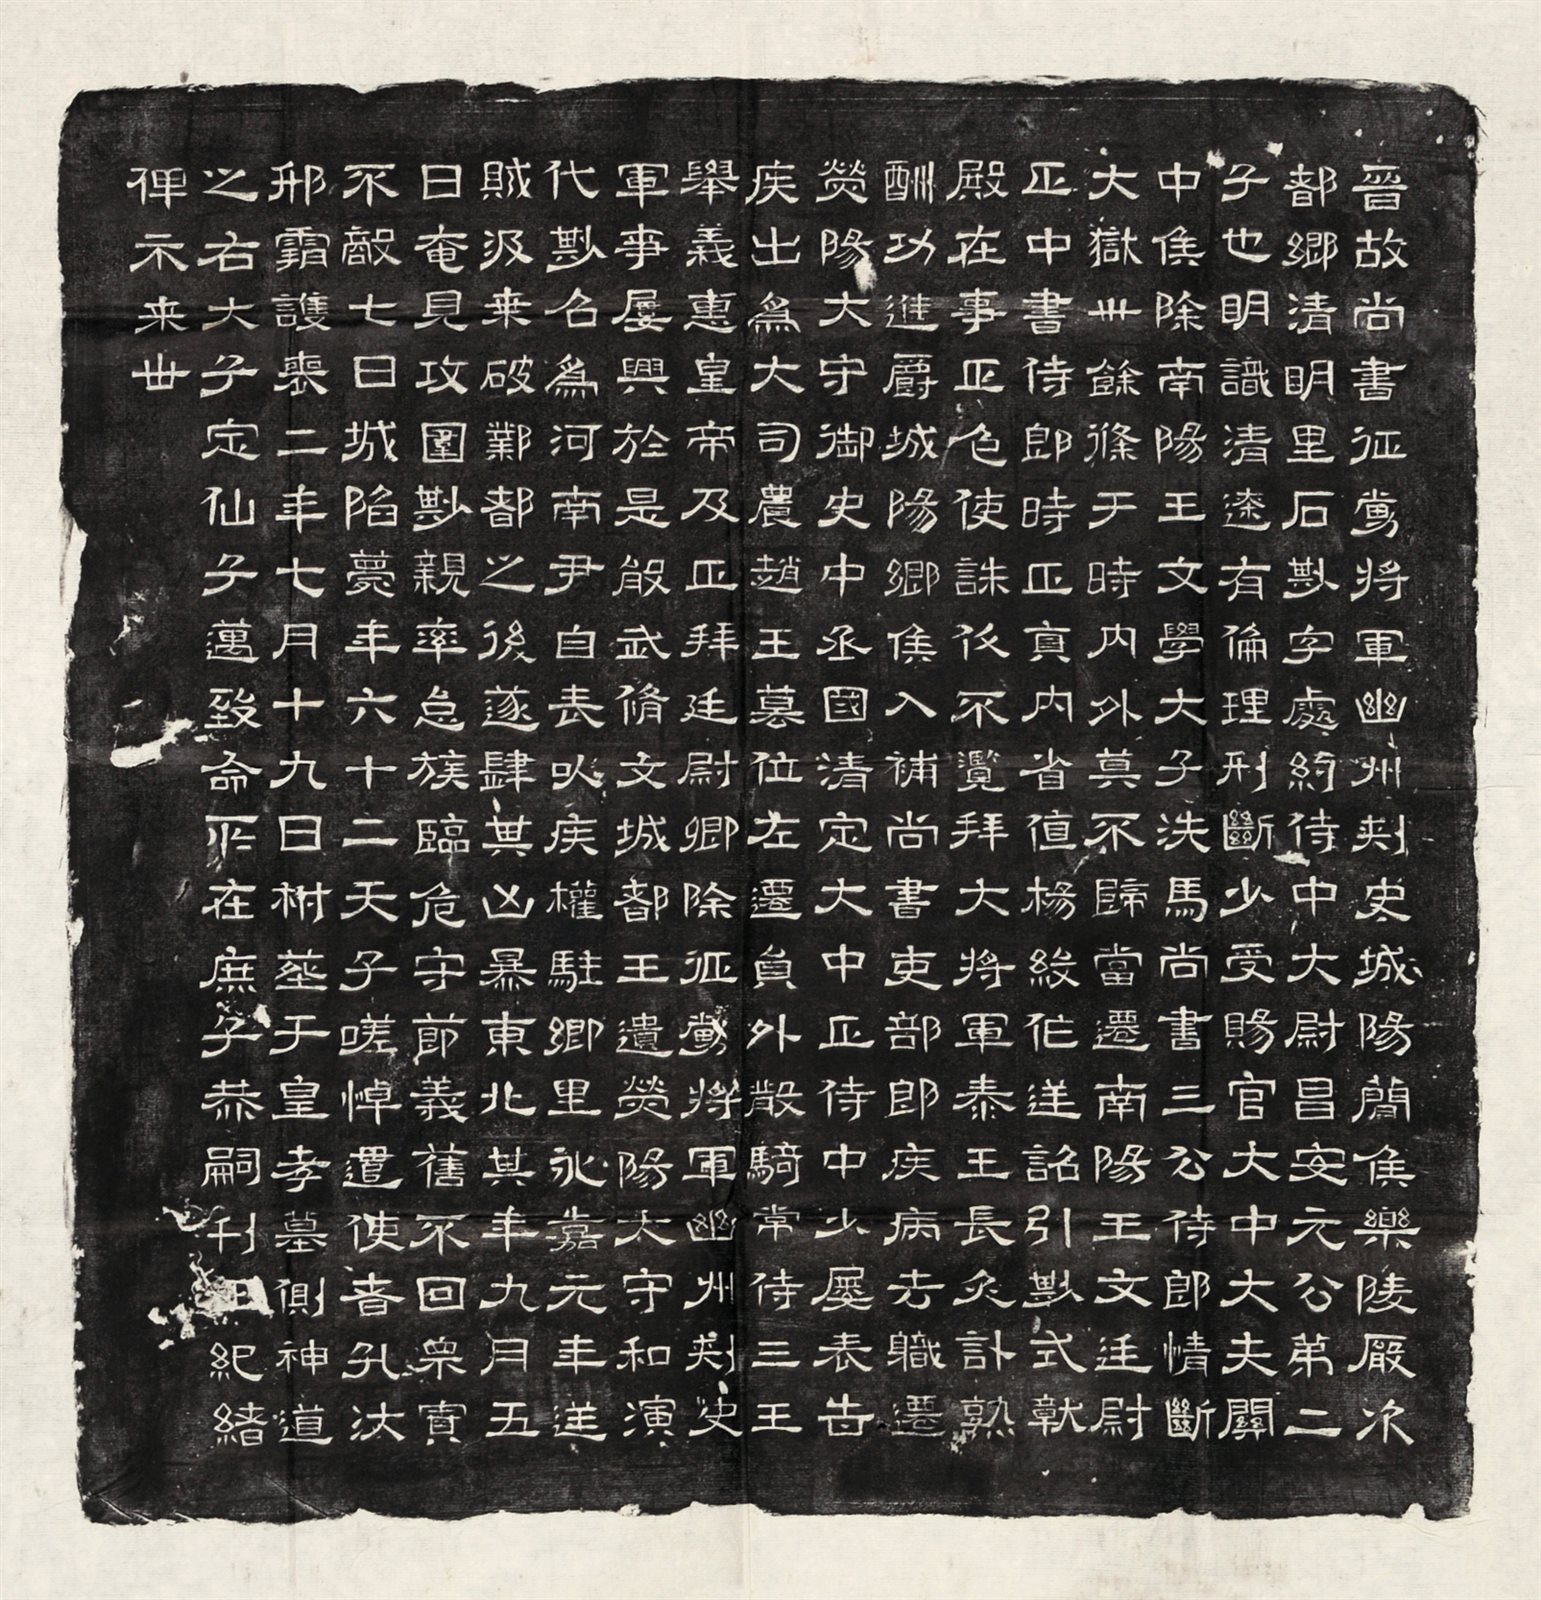 晉故尚書征虜將軍幽州刾史城陽簡侯樂陵厭次
都鄉清明里石尠字處約侍中大尉昌安元公弟二
子也明識清遠有倫理刑斷少受賜官大中大夫關
中侯除南陽王文學大子洗馬尚書三公侍郎情斷
大獄卅餘條于時內外莫不歸當遷南陽王文廷尉
正中書侍郎時正直內省值楊綏作逆詔引尠式乾
殿在事正色使誅伐不濫拜大將軍泰王長史討熟
酬功進爵城陽鄉侯入補尚書吏部郎疾病去職遷
滎陽大守御史中丞國清定大中正侍中少屢表告
疾出為大司農趙王墓位左遷員外散騎常侍三王
舉義惠皇帝及正拜廷尉卿除征虜將軍幽州刾史
軍事屢興於是㪚武脩文城都王遣滎陽太守和演
代尠名為河南尹自表以疾權駐鄉里永嘉元年逆
賊汲来破鄴都之後遂肆其凶暴東北其年九月五
日奄見攻圍尠親率怠族臨危守節義舊不回衆寡
不敵七日城陷薨年六十二天子嗟悼遣使者孔汰
邢霸護喪二年七月十九日祔葬于皇考墓側神道
之右大子定仙子邁致命所在庶子恭嗣刊石紀終
俾示来世